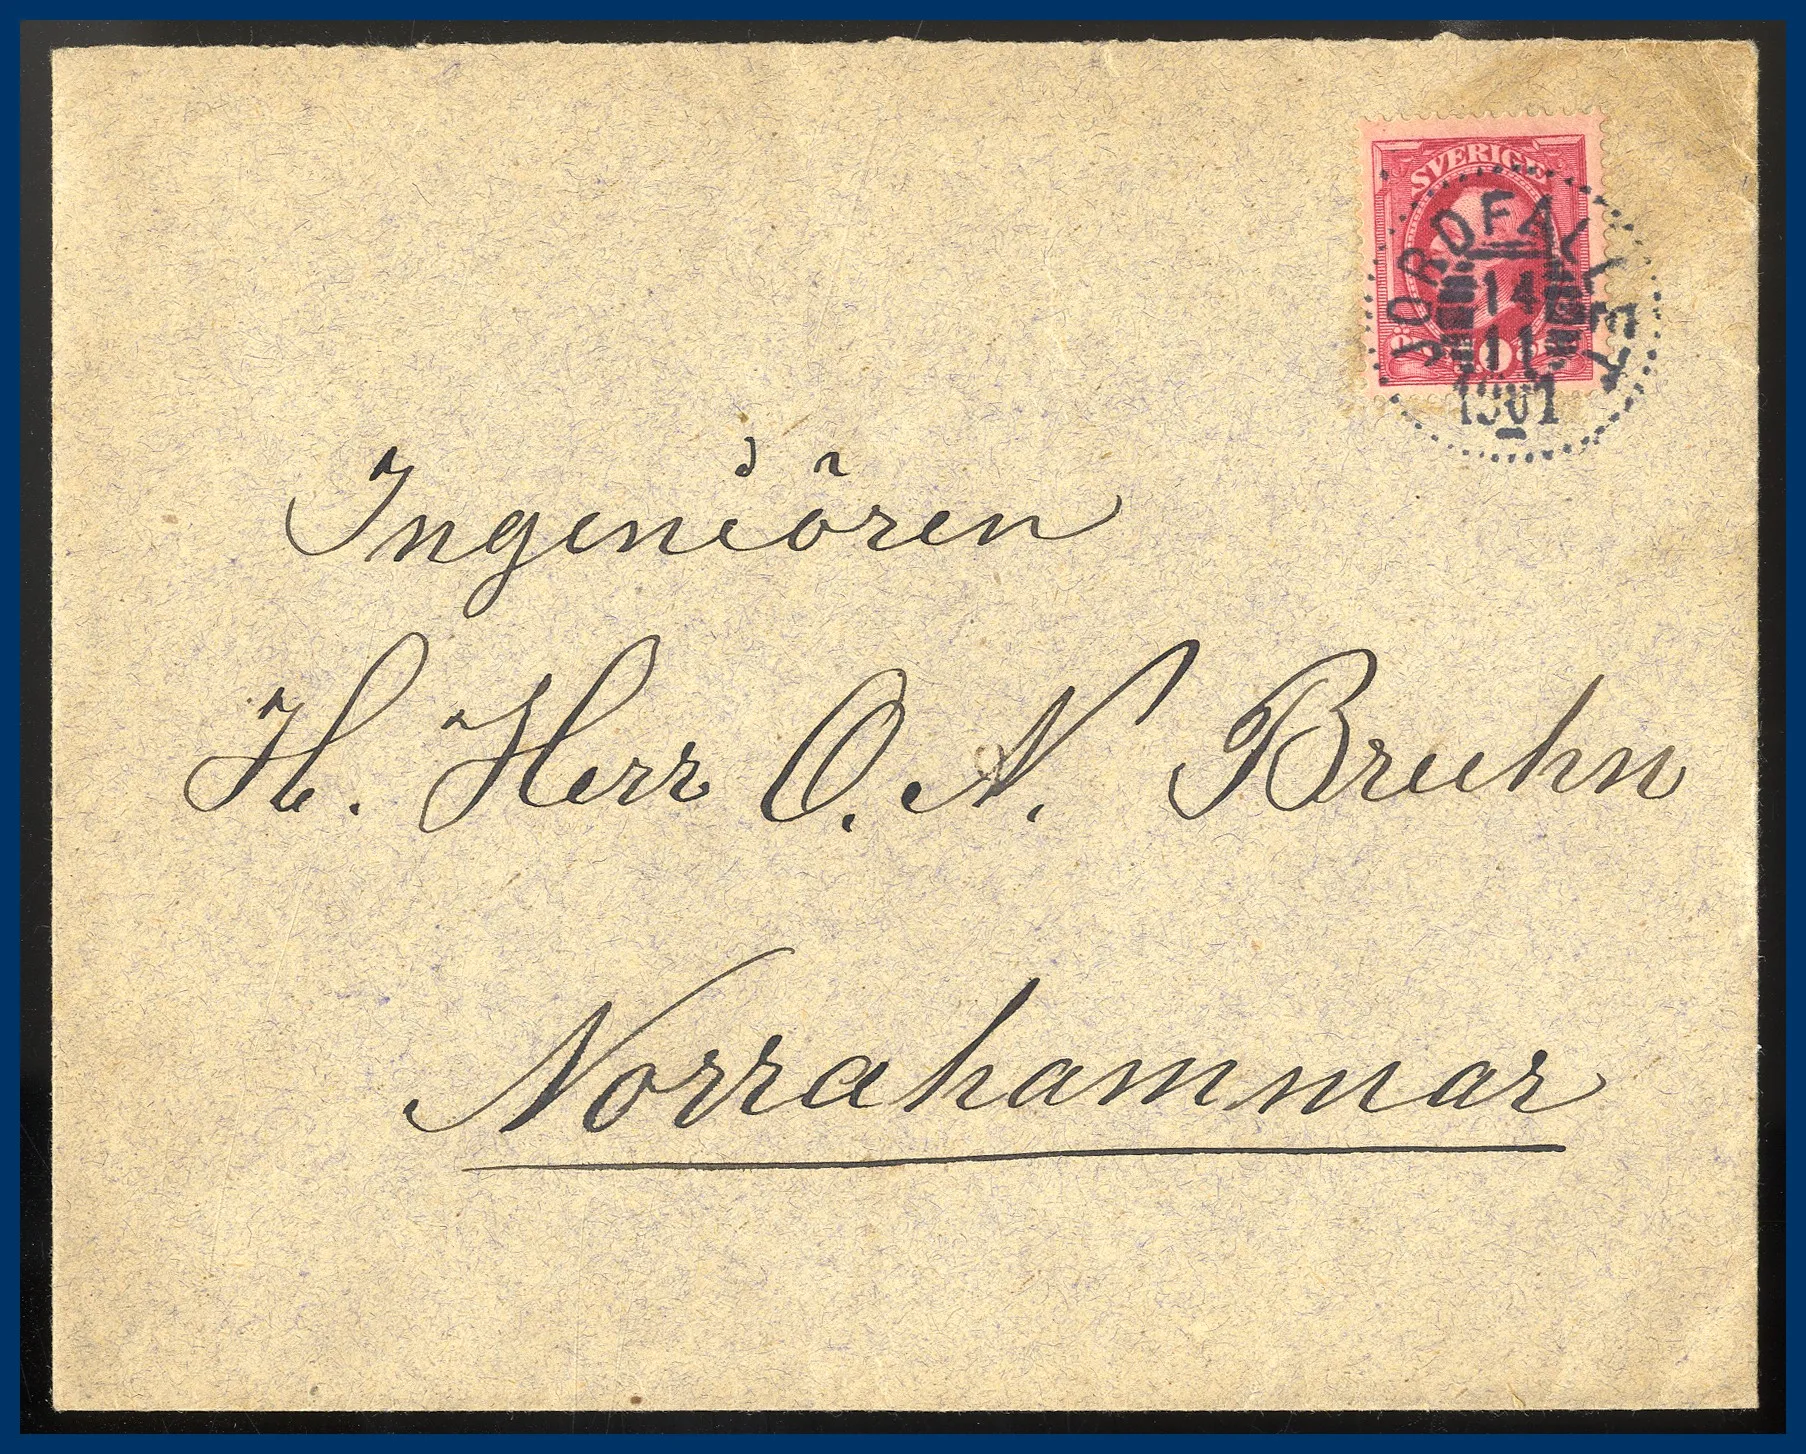 SVERIGE
JORDFALLET
14
11
1901
10
Ingeniören
H. Herr O. N. Bruhn
Norrahammar